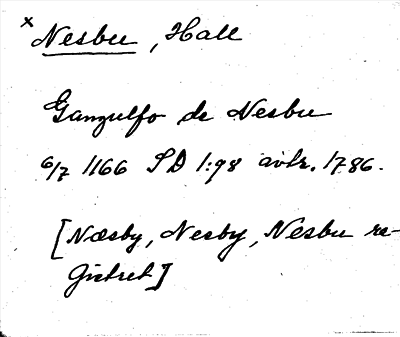 x Nesbu, Hall
Ganzulfo de Nesbu
6/7 1166 SD 1:98 avtr. 1786.
[Næsby, Nesby, Nesbu re-
gistret]